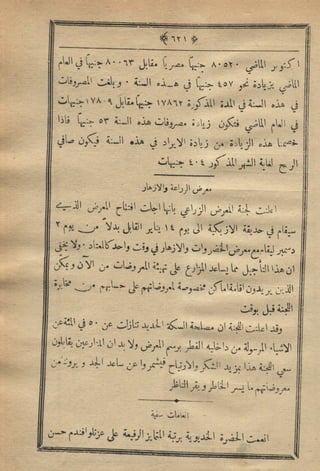 ﴿ ٦٢١ ﴾
اكتوبر الماضي ٨٠٥٢٠ جنيهاً مصرياً مقابل ٨٠٠٦٣ جنيهاً في العام
الماضي بزيادة نحو ٤٥٧ جنيهاً في هـذه السنة ٠ وبلغت المصروفات
في هذه السنة في المدة المذكورة ١٧٨٦٢ جنيهاً مقابل ١٧٨٠٩ جنيهات
في العام الماضي فتكون زيادة مصروفات هذه السنة ٥٣ جنيهاً فاذا
خصمنا هذه الزيادة من زيادة الايراد في هذه السنة فيكون صافي
الربح لغاية الشهر المذكور ٤٠٤ جنيهات
معرض الزراعة والازهار
اعلنت لجنة المعرض الزراعي بانها اجلت افتتاح المعرض الذـي
سيقام في حديقة الازبكية الى يوم ١٤ يناير القابل بدلاً من يوم ٣
دسمبر ليقام مع معرض الخضروات والازهار في وقت واحد كالمعتاد ٠ ولا يخفى
ان هذا التأجيل مما يساعد المزارع على تهيئة المعروضات من الآن ويمكّن
الذين يريدون اقامة اماكن مخصوصة لمعروضاتهم على حسابهم من مخابرة
اللجنة قبل بوقت
وقد اعلنت اللجنة ان مصلحة السكة الحديد تنازلت عن ٥٠ في المئة عن
الاشياء المرسولة من داخلية القطر برسم المعرض ولا بد ان المزارعين يقابلون
سعي اللجنة هذا بمزيد الشكر والارتياح فيشمروا عن ساعد الجد و يرونه من
معروضاتهم ما يسر الخاطر ويقر الناظر
انعامات سنية
انعمت الحضرة الخديوية برتبة المتمايز الرفيعة على عزتلو افندم حسن